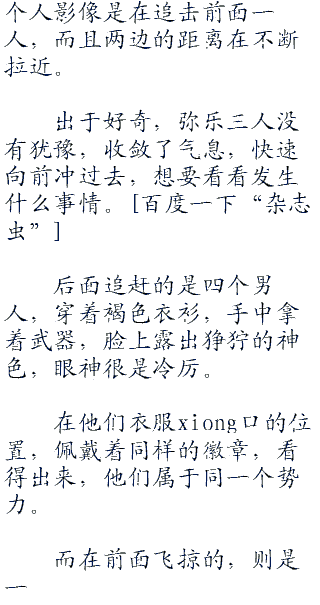 个人影像是在追击前面一
人，而且两边的距离在不断
拉近。
出于好奇，弥乐三人没
有犹豫，收敛了气息，快速
向前冲过去，想要看看发生
什么事情。[百度一下“杂志
虫”]
后面追赶的是四个男
人，穿着褐色衣衫，手中拿
着武器，脸上露出狰狞的神
色，眼神很是冷厉。
在他们衣服xiong口的位
置，佩戴着同样的徽章，看
得出来，他们属于同一个势
力。
而在前面飞掠的，则是
一